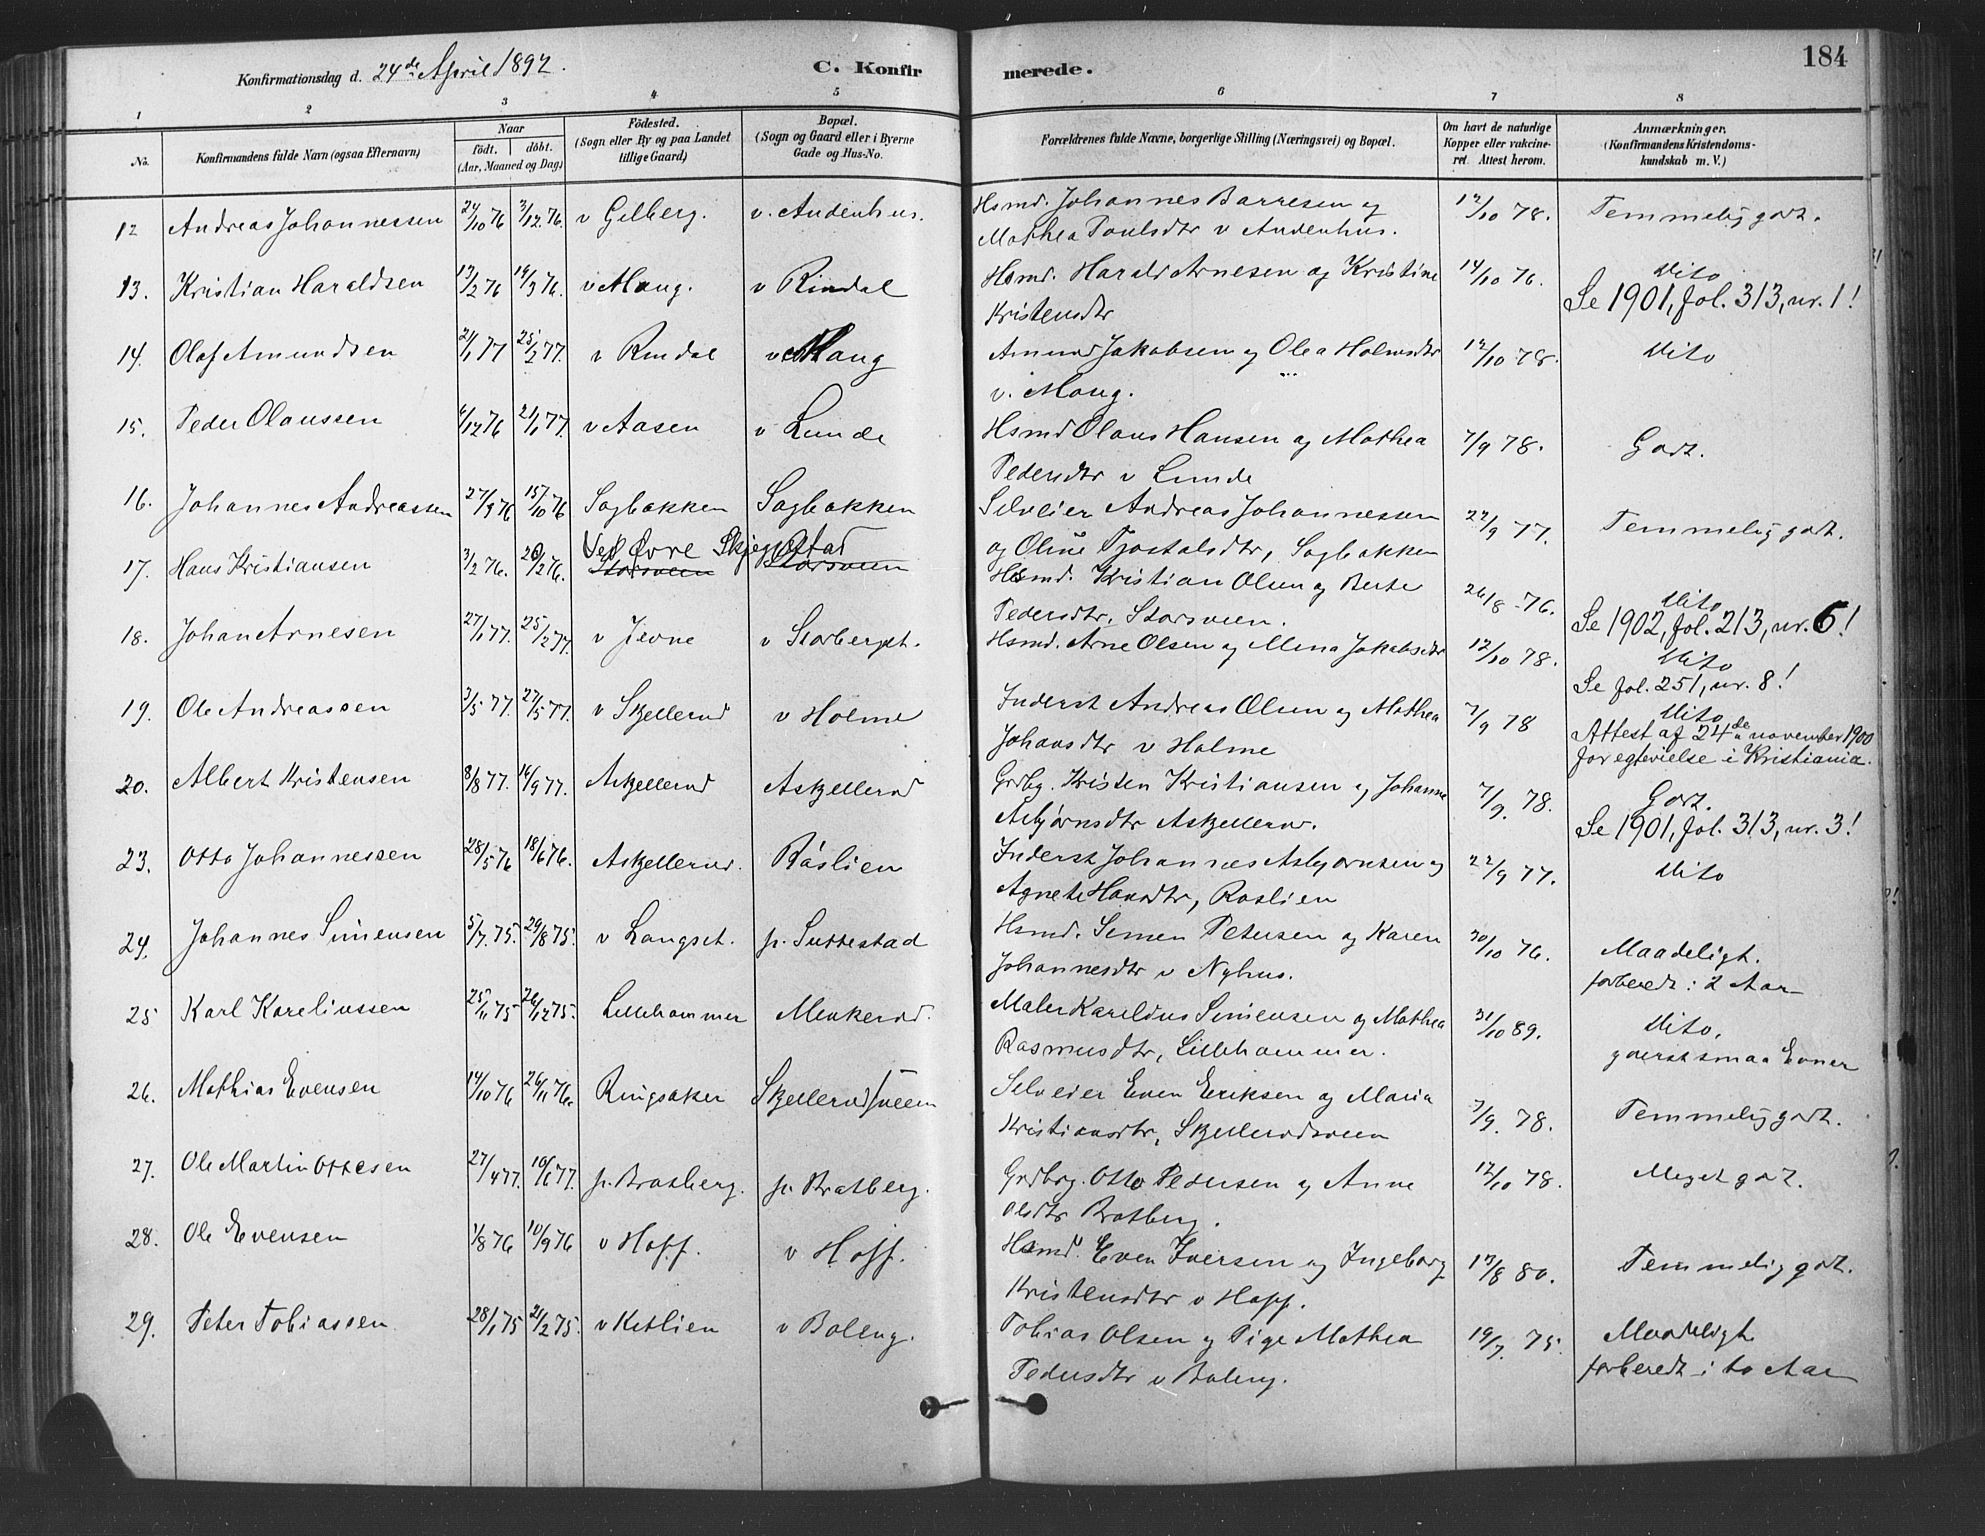 184
Konfirmationsdag d. 24de April 1892.
C. Konfirmerede.
1 2 3 4 5 6 7 8
No.
Konfirmandens fulde Navn (ogsaa Efternavn)
Naar
födt. döbt.
(Aar, Maaned og Dag)
Födested.
(Sogn eller By og paa Landet
tillige Gaard)
Bopæl.
(Sogn og Gaard eller i Byerne
Gade og Hus-No.
Forældrenes fulde Navne, borgerlige Stilling (Næringsvei) og Bopæl.
Om havt de naturlige
Kopper eller vakcine-
ret. Attest herom.
Anmærkninger.
(Konfirmandens Kristendoms-
kundskab m. V.)
12 Andreas Johannessen 24/10 76 3/12 76. v Gilberg. v. Audenhus. Hsmd. Johannes Barresen og 12/10 78. Temmelig godt.
Mathea Poulsdtr v Audenhus.
13. Kristian Haraldsen 13/2 76 19/3 76. v Moug. v Rindal Hsmd. Harald Arnesen og Kristine 14/10 76. Dito
Kristensdtr Se 1901, fol. 313, nr. 1!
14. Olaf Amundsen 21/1 77 25/2 77. v Rindal v Moug Amund Jakobsen og Olea Holmsdtr 12/10 78. Dito
v. Moug.
15. Peder Olaussen 4/12 76 21/1 77. v Aasen v Lunde Hsmd Olaus Hansen og Mathea 7/9 78. Godt.
Pedersdtr v Lunde
16. Johannes Andreassen 27/9 76 15/10 76 Sagbakken Sagbakken Selveier Andreas Johannessen 22/9 77. Temmelig godt.
og Oline Tjostolsdtr, Sagbakken
Ved Øvre Skjeggestad
17. Hans Kristiansen 3/2 76. 20/2 76. Storsveen Storsveen Hsmd. Kristian Olsen og Berte 26/8 - 76. Dito
Pedersdtr, Storsveen. Se 1902, fol. 213, nr. 6!
18. Johan Arnesen 27/1 77. 25/2 77. v Jevne v Storberget. Hsmd. Arne Olsen og Mina Jakobsdtr 12/10 78. Dito
Se fol. 251, nr. 8!
19. Ole Andreassen 3/5 77. 27/5 77. v Skjellerud v Holme Inderst Andreas Olsen og Mathea 7/9 78 Dito
Johansdtr v Holme Attest af 24de november 1900
for egtevielse i Kristiania.
20. Albert Kristensen 8/8 77. 16/9 77. Askjellerud Askjellerud Grdbg. Kristen Kristiansen og Johanne 7/9. 78. Godt.
Asbjørnsdtr Askjellerud. Se 1901, fol. 313, nr. 3!
23. Otto Johannessen 28/5 76 18/6 76. Askjellerud. Råslien Inderst Johannes Asbjørnsen og 22/9 77. Dito
Agnete Hansdtr, Roslien
24. Johannes Simensen 5/7. 75. 29/8 75. v Langset. p. Suttestad Hsmd. Semen Petersen og Karen 30/10 76. Maadeligt.
Johannesdtr v Nyhus. forberedt i 2 Aar
25 Karl Kareliussen 25/11 75 26/12 75. Lillehammer Menkerud. Maler Karelius Simensen og Mathea 31/10 89. Dito,
Rasmusdtr, Lillehammer. yderst smaa Evner
26. Mathias Evensen 14/10 76 26/11 76. Ringsaker Skjellerudsveen Selveier Even Eriksen og Maria 7/9. 78. Temmelig godt.
Kristiansdtr, Skjellerudsveen
27. Ole Martin Ottesen 27/4 77. 10/6 77. p. Bratberg. p. Bratberg. Grdbrg. Otto Pedersen og Anne 12/10 78. Meget godt.
Olsdtr Bratberg.
28. Ole Evensen 1/8 76 10/9 76 v Hoff. v Hoff. Hsmd. Even Iversen og Ingeborg 13/8 80. Temmelig godt.
Kristensdtr v Hoff.
29. Peter Tobiassen 28/1 75 21/2 75. v Ketlien v Boleng. Tobias Olsen og Pige Mathea 19/7. 75. Maadeligt
Pedersdtr v Boleng. forberedt i to Aar